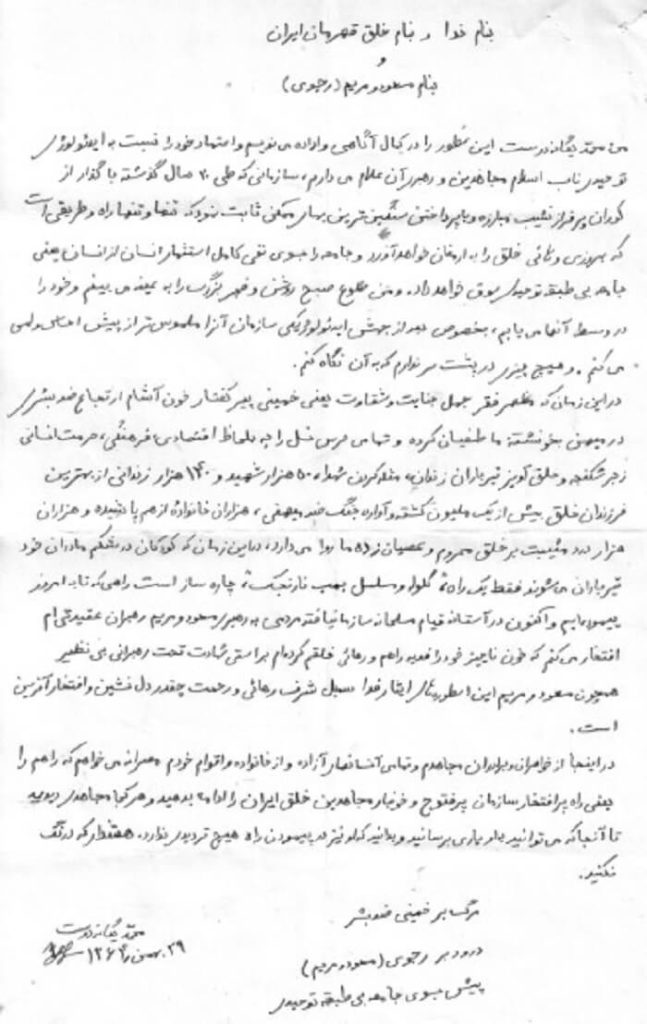 بنام خدا و بنام خلق قهرمان ایران
و
بنام مسعود و مریم (رجوی)
من محمد یگانه درست این سطور را در کمال آگاهی و اراده می نویسم و اعتماد خود را نسبت به ایدئولوژی
توحیدی ناب اسلام مجاهدین و رهبری آن اعلام می دارم، سازمانی که طی ۲۰ سال گذشته با گذار از
کوران پر فراز و نشیب مبارزه و با پرداختن سنگین ترین بهای ممکن ثابت نمود که تنها و تنها راه و طریقی است
که بهروزی و رهائی خلق را به ارمغان خواهد آورد و جامعه را بسوی نفی کامل استثمار انسان از انسان یعنی
جامعه بی طبقه توحیدی سوق خواهد داد. و من طلوع صبح روشن و فجر بزرگ را به عینه می بینم و خود را
در وسط آنها می یابم، بخصوص بعد از جهش ایدئولوژیکی سازمان آنرا ملموس تر از پیش احساس و لمس
می کنم. و هیچ چیزی در پشت سر ندارم که به آن نگاه کنم.
در این زمان که مظهر فقر جهل جنایت و شقاوت یعنی خمینی پیر کفتار خون آشام ارتجاع ضد بشری
در میهن بخون نشسته ما طغیان کرده و تمامی حرس نسل را چه بلحاظ اقتصادی، فرهنگی، حرمت انسانی
زجر شکنجه و حلق آویز تیرباران زندان، مثله کردن شهدا، ۵۰ هزار شهید و ۱۴۰ هزار زندانی از بهترین
فرزندان خلق بیش از یک میلیون کشته و آواره جنگ ضد میهنی، هزاران خانواده از هم پاشیده و هزاران
هزار درد و مصیبت بر خلق محروم و عصیان زده ما روا می دارد، در این زمان که کودکان در شکم مادران خود
تیرباران می شوند فقط یک راه، گلوله و مسلسل بمب نارنجک، چاره ساز است راهی که تا به امروز
پیموده ایم و اکنون در آستانه قیام مسلحانه سازمانیافته مردمی به رهبری مسعود و مریم رهبران عقیدتی ام
افتخار می کنم که خون ناچیز خود را فدیه راهم و رهائی خلقم کرده ام براستی شهادت تحت رهبرانی بی نظیر
همچون مسعود و مریم این اسطوره های ایثار فدا سمبل شرف رهائی و رحمت چقدر دل نشین و افتخار آفرین
است.
در اینجا از خواهران و برادران مجاهدم و تمامی انسانهای آزاده و از خانواده و اقوام خودم مصرانه می خواهم که راهم را
یعنی راه پر افتخار سازمان پر فتوح و خونبار مجاهدین خلق ایران را ادامه بدهید و هر کجا مجاهدی دیدید
تا آنجا که می توانید به او یاری برسانید و بدانید که او نیز در پیمودن راه هیچ تردیدی ندارد، درنگ
نکنید.
مرگ بر خمینی ضد بشر
درود بر رجوی (مسعود و مریم)
پیش بسوی جامعه بی طبقه توحیدی
محمد یگانه درست
۲۹ بهمن ۱۳۶۴